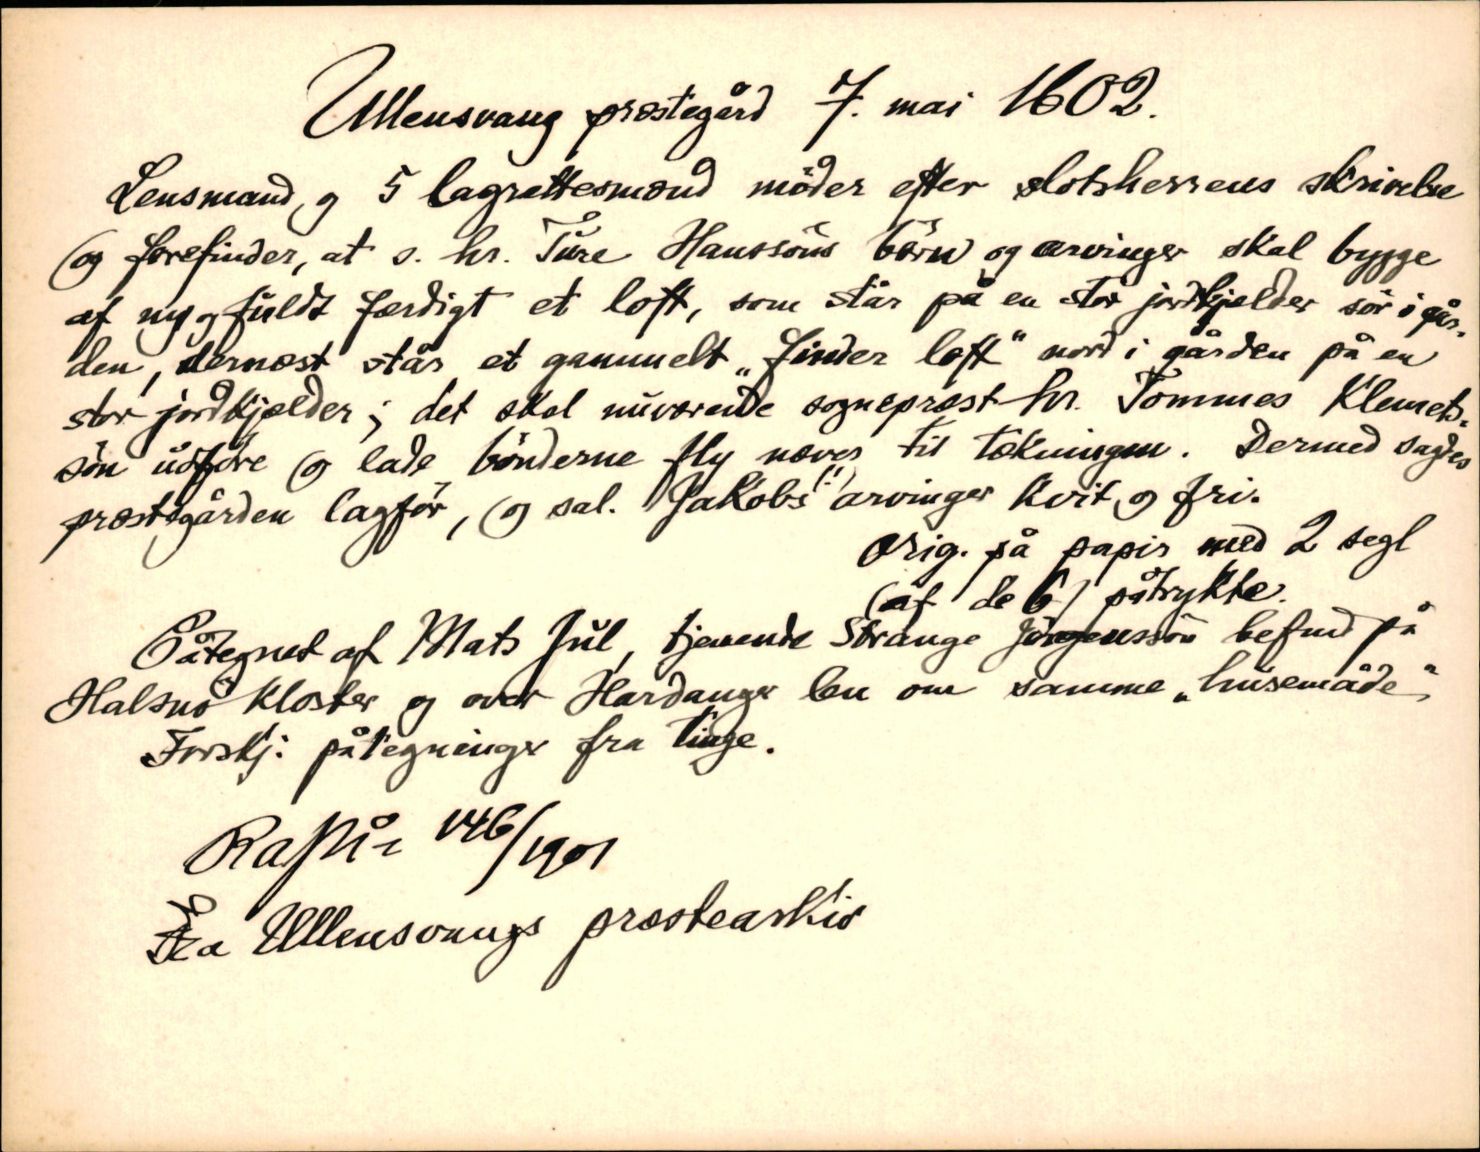 Ullensvang præstegård 7. mai 1602.
Lensmand og 5 lagrettesmænd möder efter slotsherrens skrivelse
og forefinder, at s. hr. Ture Hanssöns börn og arvinger skal bygge
af ny og fuldt færdigt et loft, som står på en stor jordkjelder sör i går-
den, dernæst står et gammelt „finder loft“ nord i gården på en
stor jordkjælder; det skal nuværende sognepræst hr. Tommes Klemets-
sön udföre og lade bönderne fly næver til tækningen. Dermed sagdes
præstegården lagför, og sal. Jakobs (!) arvinger kvit og fri.
Orig. på papir med 2 segl
(af de 6) påtrykte.
Påtegnet af Mats Jul, tjenende Strange Jörgenssön befud på
Halsnö kloster og over Hardanger len om samme „husemåde“
Forskj: påtegninger fra tinge.
146/1901
Fra Ullensvangs præstearkiv